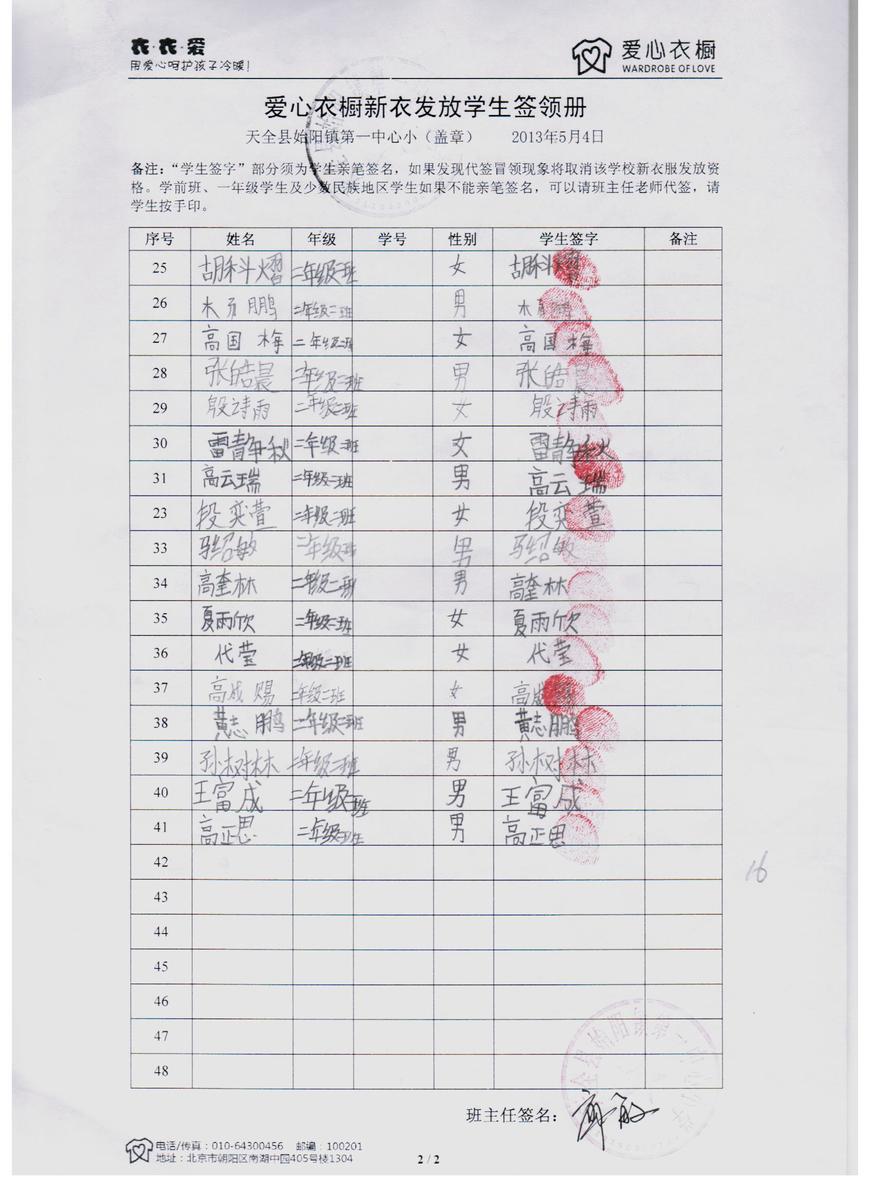 衣·衣·爱
用爱心呵护孩子冷暖!
爱心衣橱
WARDROBE OF LOVE
爱心衣橱新衣发放学生签领册
天全县始阳镇第一中心小（盖章） 2013年5月4日
备注：“学生签字”部分须为学生亲笔签名，如果发现代签冒领现象将取消该学校新衣服发放资
格。学前班、一年级学生及少数民族地区学生如果不能亲笔签名，可以请班主任老师代签，请
学生按手印。
序号 姓名 年级 学号 性别 学生签字 备注
25 胡科熠 二年级二班 女 胡科熠
26 木乃鹏 二年级二班 男 木乃鹏
27 高国梅 二年级二班 女 高国梅
28 张皓晨 二年级二班 男 张皓晨
29 殷诗雨 二年级二班 女 殷诗雨
30 雷静秋 二年级二班 女 雷静秋
31 高云瑞 二年级二班 男 高云瑞
23 段奕萱 二年级二班 女 段奕萱
33 马绍敏 二年级二班 男 马绍敏
34 高奎林 二年级二班 男 高奎林
35 夏雨欣 二年级二班 女 夏雨欣
36 代莹 二年级二班 女 代莹
37 高成赐 二年级二班 女 高成赐
38 黄志鹏 二年级二班 男 黄志鹏
39 孙树林 二年级二班 男 孙树林
40 王富成 二年级二班 男 王富成
41 高正思 二年级二班 男 高正思
42
16
43
44
45
46
47
48
全县始阳镇第一中心小学
班主任签名：
电话/传真：010-64300456 邮编：100201
地址：北京市朝阳区南湖中园405号楼1304
2 / 2